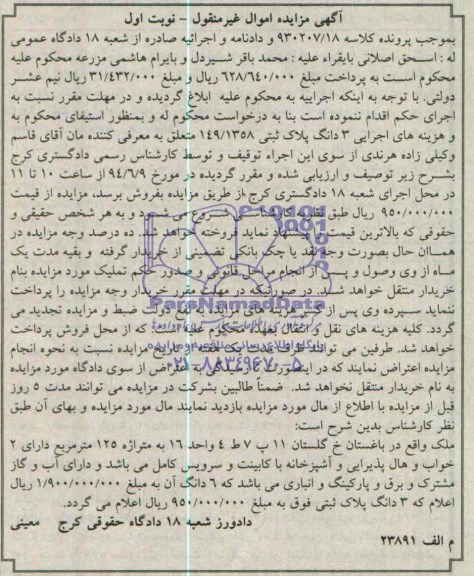 آگهی مزایده اموال غیرمنقول - نوبت اول
بموجب پرونده کلاسه ۹۳۰۲۰۷/۱۸ و دادنامه و اجرائیه صادره از شعبه ۱۸ دادگاه عمومی
له : اسحق اصلانی بایقراء علیه : محمد باقر شیردل و بایرام هاشمی مزرعه محکوم علیه
محکوم است به پرداخت مبلغ ۶۲۸/۶۴۰/۰۰۰ ریال و مبلغ ۳۱/۴۳۲/۰۰۰ ریال نیم عشر
دولتی. با توجه به اینکه اجراییه به محکوم علیه ابلاغ گردیده و در مهلت مقرر نسبت به
اجرای حکم اقدام ننموده است بنا به درخواست محکوم له و بمنظور استیفای محکوم به
و هزینه های اجرایی ۳ دانگ پلاک ثبتی ۱۴۹/۱۳۵۸ متعلق به معرفی کننده مان آقای قاسم
وکیلی زاده هرندی از سوی این اجراء توقیف و توسط کارشناس رسمی دادگستری کرج
بشرح زیر توصیف و ارزیابی شده و مقرر گردیده در مورخ ۹۴/۶/۹ از ساعت ۱۰ تا ۱۱
در محل اجرای شعبه ۱۸ دادگستری کرج از طریق مزایده بفروش برسد، مزایده از قیمت
۹۵۰/۰۰۰/۰۰۰ ریال طبق نظریه کارشناسی شروع می شود و به هر شخص حقیقی و
حقوقی که بالاترین قیمت پیشنهاد نماید فروخته خواهد شد. ده درصد وجه مزایده در
همان حال بصورت وجه نقد یا چک بانکی تضمینی از خریدار گرفته و بقیه مدت یک
ماه از وی وصول و پس از انجام مراحل قانونی و صدور حکم تملیک مورد مزایده بنام
خریدار منتقل خواهد شد. در صورتیکه در مهلت مقرر خریدار وجه مزایده را پرداخت
ننماید سپرده وی پس از کسر هزینه های مزایده به نفع دولت ضبط و مزایده تجدید می
گردد. کلیه هزینه های نقل و انتقال بعهده محکوم علیه است که از محل فروش پرداخت
خواهد شد. طرفین می توانند ظرف مدت یک هفته از تاریخ مزایده نسبت به نحوه انجام
مزایده اعتراض نمایند که در اینصورت تا رسیدگی به اعتراض از سوی دادگاه مورد مزایده
به نام خریدار منتقل نخواهد شد. ضمناً طالبین بشرکت در مزایده می توانند مدت ۵ روز
قبل از مزایده با اطلاع از مال مورد مزایده بازدید نمایند مال مورد مزایده و بهای آن طبق
نظر کارشناس بدین شرح است:
ملک واقع در باغستان خ گلستان ۱۱ پ ۷ ط ۴ واحد ۱۶ به متراژه ۱۲۵ مترمربع دارای ۲
خواب و هال پذیرایی و آشپزخانه با کابینت و سرویس کامل می باشد و دارای آب و گاز
مشترک و برق و پارکینگ و انباری می باشد که ۶ دانگ آن به مبلغ ۱/۹۰۰/۰۰۰/۰۰۰ ریال
اعلام که ۳ دانگ پلاک ثبتی فوق به مبلغ ۹۵۰/۰۰۰/۰۰۰ ریال اعلام می گردد.
دادورز شعبه ۱۸ دادگاه حقوقی کرج معینی
م الف ۲۳۸۹۱
ParsNamadData
۰۲۱-۸۸۳۴۹۶۷۰-۵